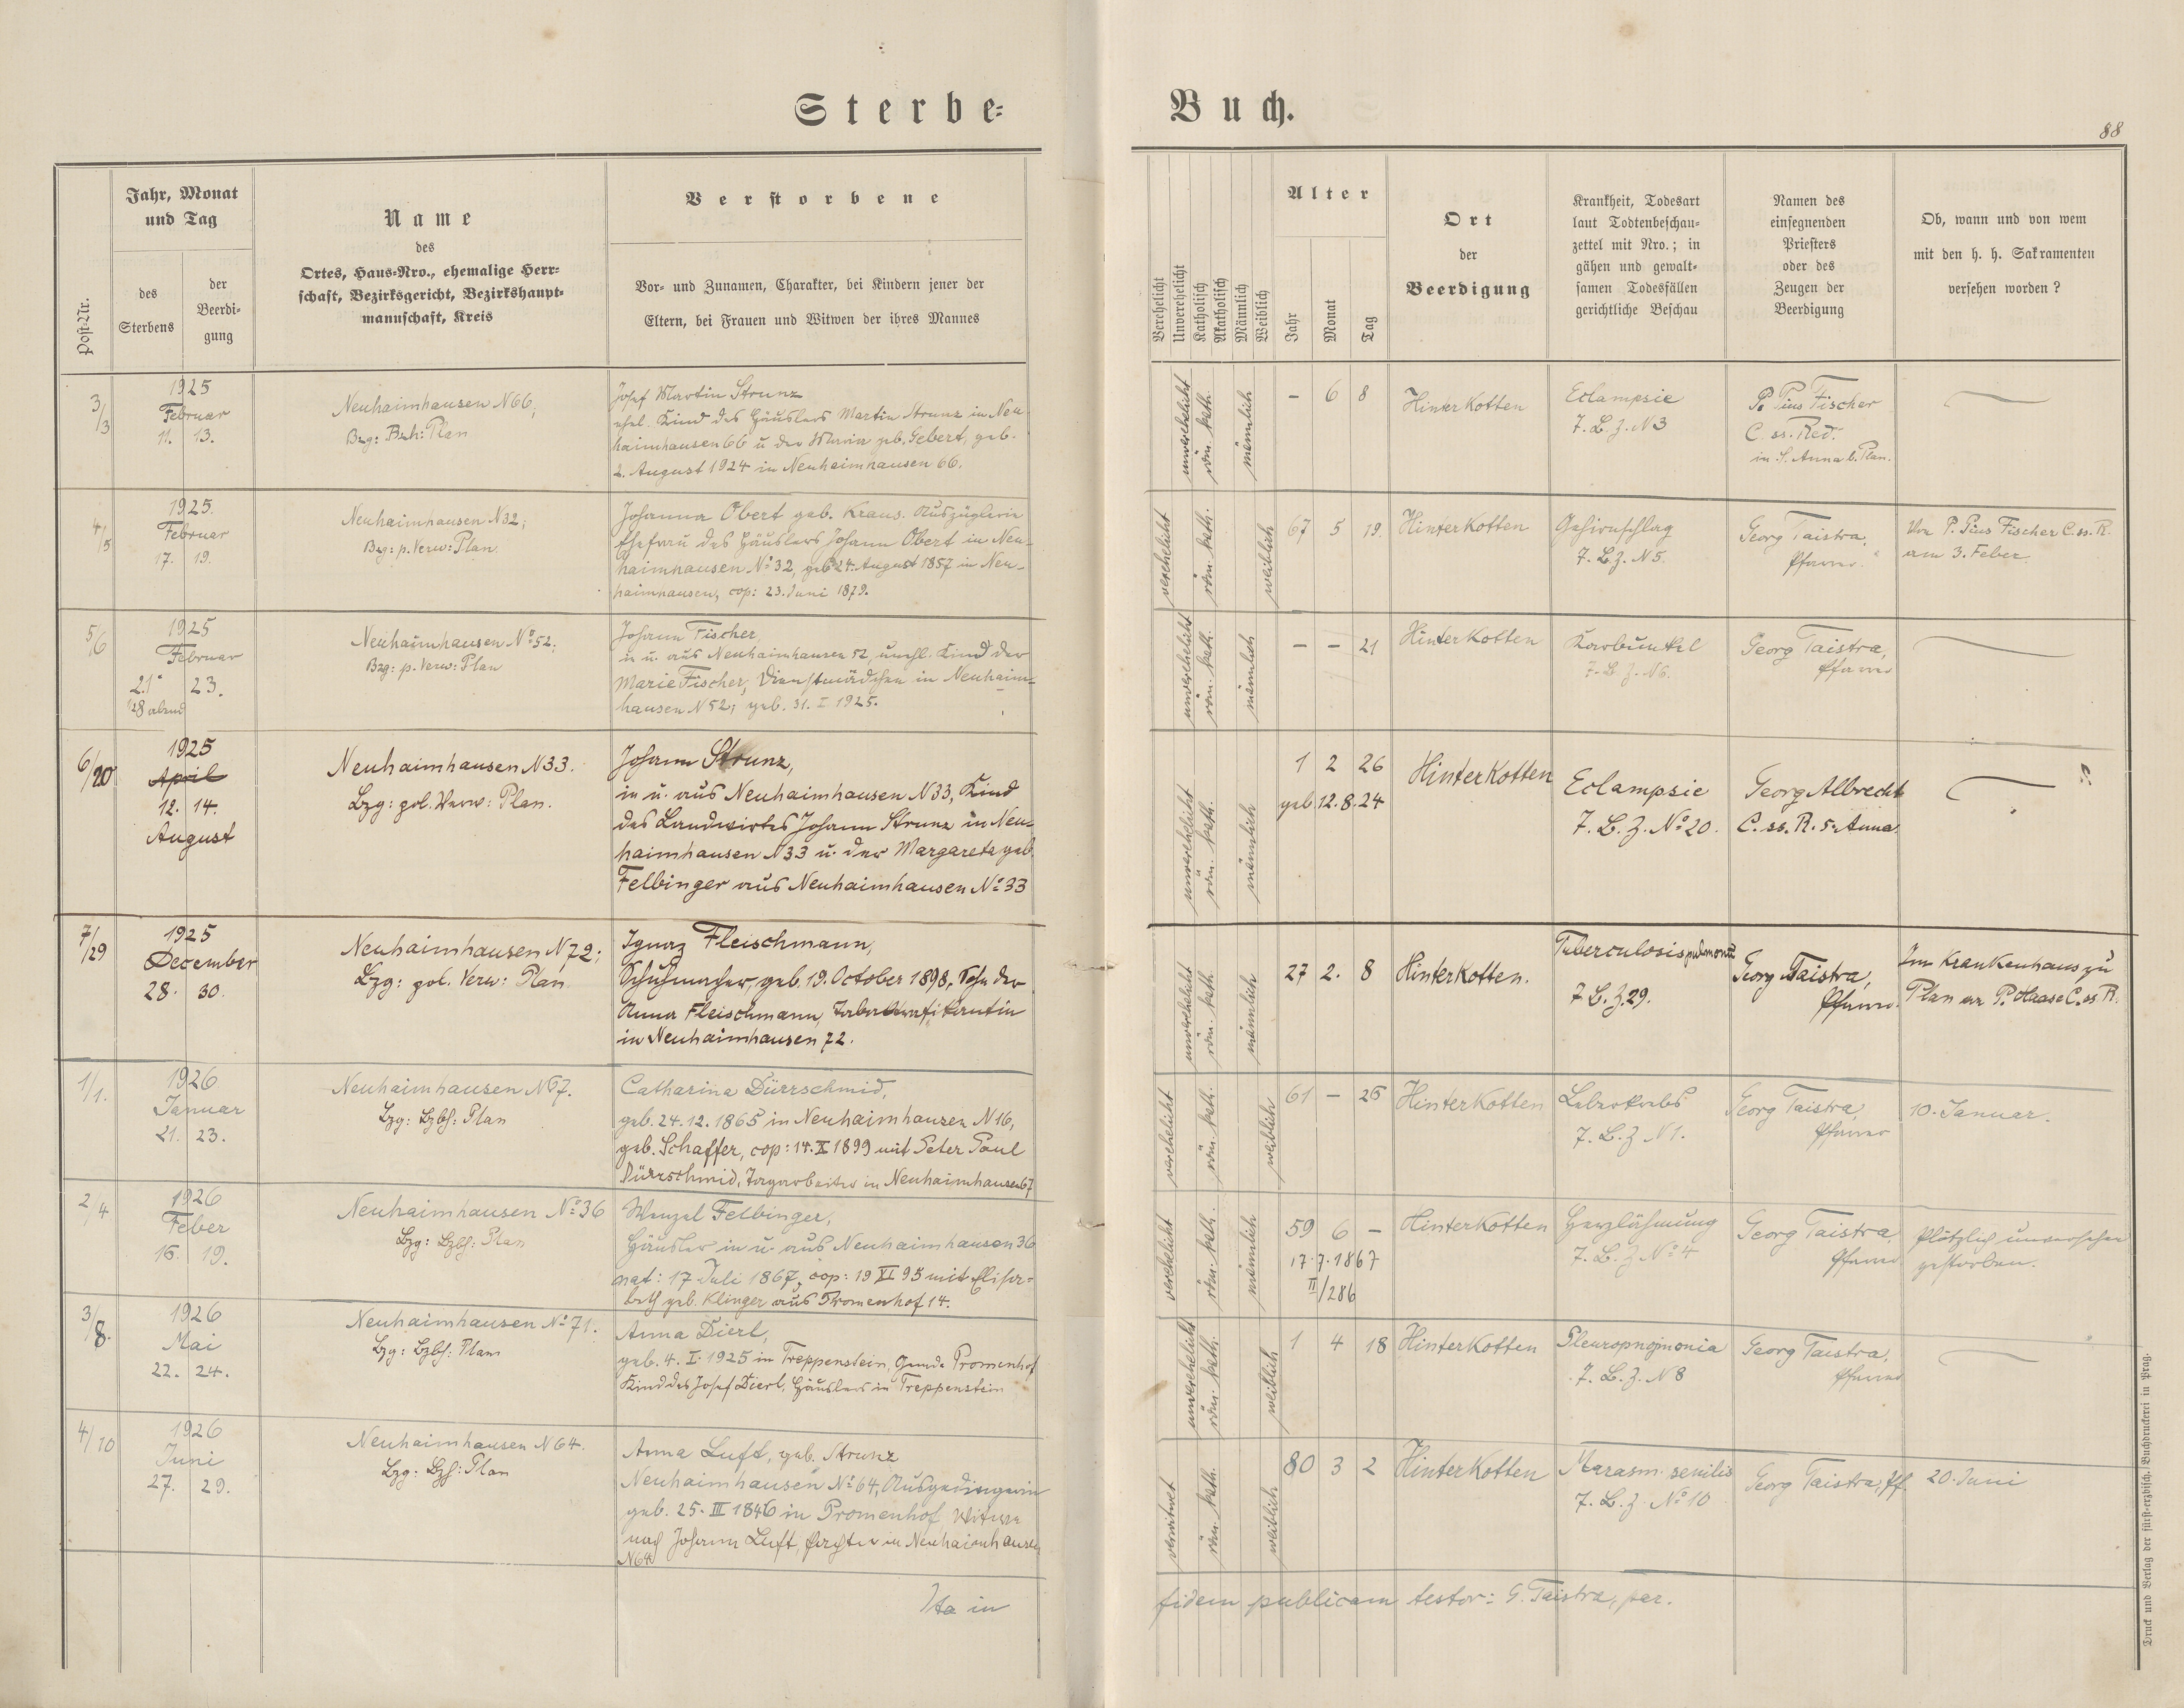 Sterbe=
Buch.
88
Post-Nr.
Jahr, Monat
und Tag
des
Sterbens
der
Beerdi-
gung
Name
des
Ortes, Haus-Nro., ehemalige Herr-
schaft, Bezirksgericht, Bezirkshaupt-
mannschaft, Kreis
Verstorbene
Vor- und Zunamen, Charakter, bei Kindern jener der
Eltern, bei Frauen und Witwen der ihres Mannes
Verehelicht
Unverehelicht
Katholisch
Akatholisch
Männlich
Weiblich
Alter
Jahr
Monat
Tag
Ort
der
Beerdigung
Krankheit, Todesart
laut Todtenbeschau-
zettel mit Nro.; in
gähen und gewalt-
samen Todesfällen
gerichtliche Beschau
Namen des
einsegnenden
Priesters
oder des
Zeugen der
Beerdigung
Ob, wann und von wem
mit den h. h. Sakramenten
versehen worden?
3/3
1925
Februar
11. 13.
Neuhaimhausen N66,
Bzg: Bzh: Plan
Josef Martin Strunz
ehel. Kind des Häuslers Martin Strunz in Neu-
haimhausen 66 u der Maria geb. Gebert, geb.
2. August 1924 in Neuhaimhausen 66.
unverehelicht
röm. kath.
männlich
– 6 8
Hinterkotten
Eclampsie
T. B. Z. N 3
P. Pius Fischer
C. ss. Red.
in S. Anna b. Plan.
4/5
1925.
Februar
17. 19.
Neuhaimhausen N32;
Bzg: p. Verw: Plan.
Johanna Obert geb. Kraus. Auszüglerin
Ehefrau des Häuslers Johann Obert in Neu-
haimhausen No 32, geb 24. August 1857 in Neu-
haimhausen, cop: 23. Juni 1879.
verehelicht
röm. kath.
weiblich
67 5 19.
Hinterkotten
Gehirnschlag
T. B. Z. N 5.
Georg Taistra,
Pfarrer.
Von P. Pius Fischer C. ss. R.
am 3. Feber.
5/6
1925
Februar
21. 23.
1/28 abend
Neuhaimhausen No 52;
Bzg: p. Verw: Plan
Johann Fischer,
in u. aus Neuhaimhausen 52, unehl. Kind der
Marie Fischer, Dienstmädchen in Neuhaim-
hausen N 52; geb. 31. I 1925.
unverehelicht
röm. kath.
männlich
– – 21
Hinterkotten
Karbunkel
T. B. Z. N 6.
Georg Taistra,
Pfarrer
6/20
1925
April
12. 14.
August
Neuhaimhausen N33.
Bzg: pol. Verw: Plan.
Johann Strunz,
in u. aus Neuhaimhausen N33, Kind
des Landwirtes Johann Strunz in Neu-
haimhausen N33 u. der Margareta geb.
Felbinger aus Neuhaimhausen No 33
unverehelicht
röm. kath.
männlich
1 2 26
geb. 12. 8. 24
Hinterkotten
Eclampsie
T. B. Z. No 20.
Georg Albrecht
C. ss. R. S. Anna.
7/29
1925
December
28. 30.
Neuhaimhausen N72;
Bzg: pol. Verw: Plan
Ignaz Fleischmann,
Schuhmacher, geb. 19. October 1898, Sohn der
Anna Fleischmann, Tabaktrafikantin
in Neuhaimhausen 72.
unverehelicht
röm. kath.
männlich
27 2. 8
Hinterkotten.
Tuberculosis pulmonu
T. B. Z. 29.
Georg Taistra,
Pfarrer.
Im Krankenhaus zu
Plan v. P. Haase C. ss R.
1/1.
1926
Januar
21. 23.
Neuhaimhausen N67.
Bzg: Bzbh: Plan
Catharina Dürrschmid,
geb. 24. 12. 1865 in Neuhaimhausen N16,
geb. Schaffer, cop: 14. X 1899 mit Peter Paul
Dürrschmid, Tagarbeiter in Neuhaimhausen 67
verehelicht
röm. kath.
weiblich
61 – 26
Hinterkotten
Leberkrebs
T. B. Z N 1.
Georg Taistra,
Pfarrer
10. Januar.
2/4
1926
Feber
16. 19.
Neuhaimhausen No 36
Bzg: Bzbh: Plan
Wenzel Felbinger,
Häusler in u aus Neuhaimhausen 36
nat: 17 Juli 1867, cop: 19 XI 95 mit Elisa-
beth geb. Klinger aus Promenhof 14.
verehelicht
röm. kath.
männlich
59 6 –
17. 7. 1867
II/286
Hinterkotten
Herzlähmung
T. B. Z No 4
Georg Taistra
Pfarrer
Plötzlich unversehen
gestorben.
3/8.
1926
Mai
22. 24.
Neuhaimhausen No 71.
Bzg: Bzbh: Plan
Anna Dierl,
geb. 4. I. 1925 in Treppenstein, Gemde Promenhof
Kind des Josef Dierl, Häuslers in Treppenstein
unverehelicht
röm. kath.
weiblich
1 4 18
Hinterkotten
Pleuropneumonia
T. B. Z. N 8
Georg Taistra,
Pfarrer
4/10
1926
Juni
27. 29.
Neuhaimhausen N 64.
Bzg: Bzh: Plan
Anna Luft, geb. Strunz
Neuhaimhausen No 64, Ausgedingerin
geb. 25. III 1846 in Promenhof, Witwe
nach Johann Luft, Pächter in Neuhaimhausen
N64
verwitwet
röm. kath.
weiblich
80 3 2
Hinterkotten
Marasm. senilis
T. B. Z. No 10
Georg Taistra, Pf.
20. Juni
Ita in
fidem publicam testor: G. Taistra, par.
Druck und Verlag der fürst-erzbisch. Buchdruckerei in Prag.